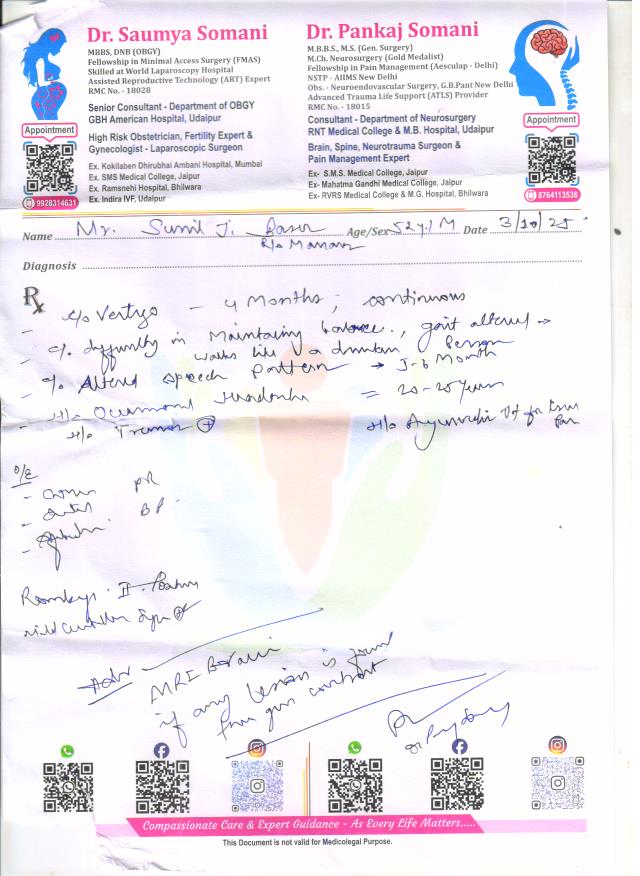 Dr. Saumya Somani
MBBS, DNB (OBGY)
Fellowship in Minimal Access Surgery (FMAS)
Skilled at World Laparoscopy Hospital
Assisted Reproductive Technology (ART) Expert
RMC No. - 18028
Senior Consultant - Department of OBGY
GBH American Hospital, Udaipur
High Risk Obstetrician, Fertility Expert &
Gynecologist - Laparoscopic Surgeon
Ex. Kokilaben Dhirubhai Ambani Hospital, Mumbai
Ex. SMS Medical College, Jaipur
Ex. Ramsnehi Hospital, Bhilwara
Ex. Indira IVF, Udaipur
Appointment
9928314631
Dr. Pankaj Somani
M.B.B.S., M.S. (Gen. Surgery)
M.Ch. Neurosurgery (Gold Medalist)
Fellowship in Pain Management (Aesculap - Delhi)
NSTP - AIIMS New Delhi
Obs. - Neuroendovascular Surgery, G.B.Pant New Delhi
Advanced Trauma Life Support (ATLS) Provider
RMC No. - 18015
Consultant - Department of Neurosurgery
RNT Medical College & M.B. Hospital, Udaipur
Brain, Spine, Neurotrauma Surgeon &
Pain Management Expert
Ex- S.M.S. Medical College, Jaipur
Ex- Mahatma Gandhi Medical College, Jaipur
Ex- RVRS Medical College & M.G. Hospital, Bhilwara
Appointment
8764113536
Name Mr. Sunil J. Age/Sex 52 y/M Date 3/10/25
R/o
Diagnosis
Rx
- c/o Vertigo - 4 Months; continuous
- c/o difficulty in Maintaining balance, gait altered →
walks like a drunken Person
- c/o Altered speech pattern → 5-6 Month
- H/o Headache = 20-25 years
H/o Trauma ⊕ H/o Ayurvedic for
O/E
- PR
- BP
-
Rombergs
mild Cerebellar Sign ⊕
Adv MRI Brain
if any lesion is found
then give contrast
Compassionate Care & Expert Guidance - As Every Life Matters.....
This Document is not valid for Medicolegal Purpose.